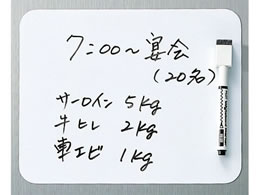 7:00〜宴会
(20名)
サーロイン 5kg
牛ヒレ 2kg
車エビ 1kg